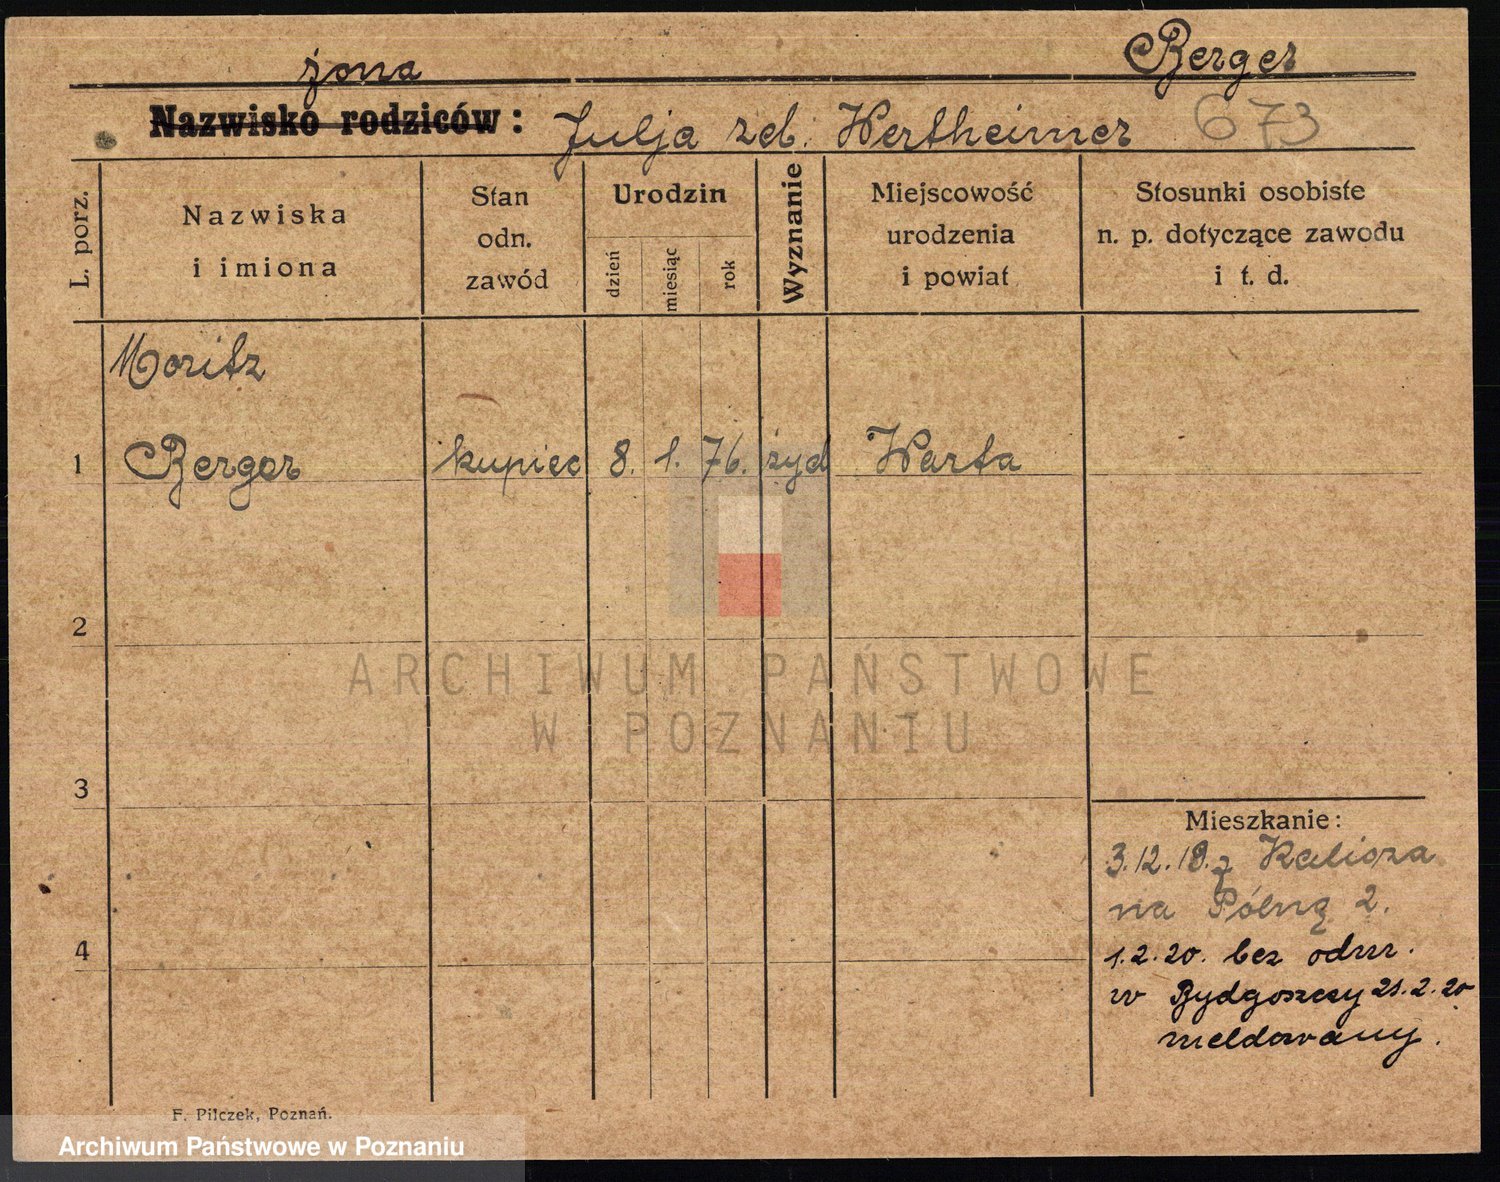 żona Berger
Nazwisko rodziców: Julja zeb. Wertheimer 673
L. porz.
Nazwiska
i imiona
Stan
odn.
zawód
Urodzin
dzień
miesiąc
rok
Wyznanie
Miejscowość
urodzenia
i powiat
Stosunki osobiste
n. p. dotyczące zawodu
i t. d.
Moritz
1 Berger kupiec 8. 1. 76. żyd Warta
2
ARCHIWUM PAŃSTWOWE
W POZNANIU
3
Mieszkanie:
3.12.19. z Kalisza
na Pólną 2.
4
1.2.20. bez odm.
w Bydgoszczy 21.2.20
meldowany.
F. Pilczek, Poznań.
Archiwum Państwowe w Poznaniu